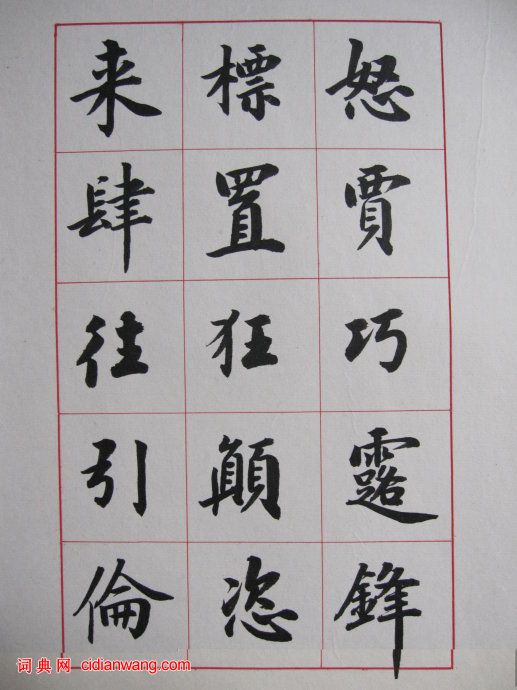 怒賈巧露鋒
標置狂顛恣
来肆往引倫
词典网 cidianwang.com